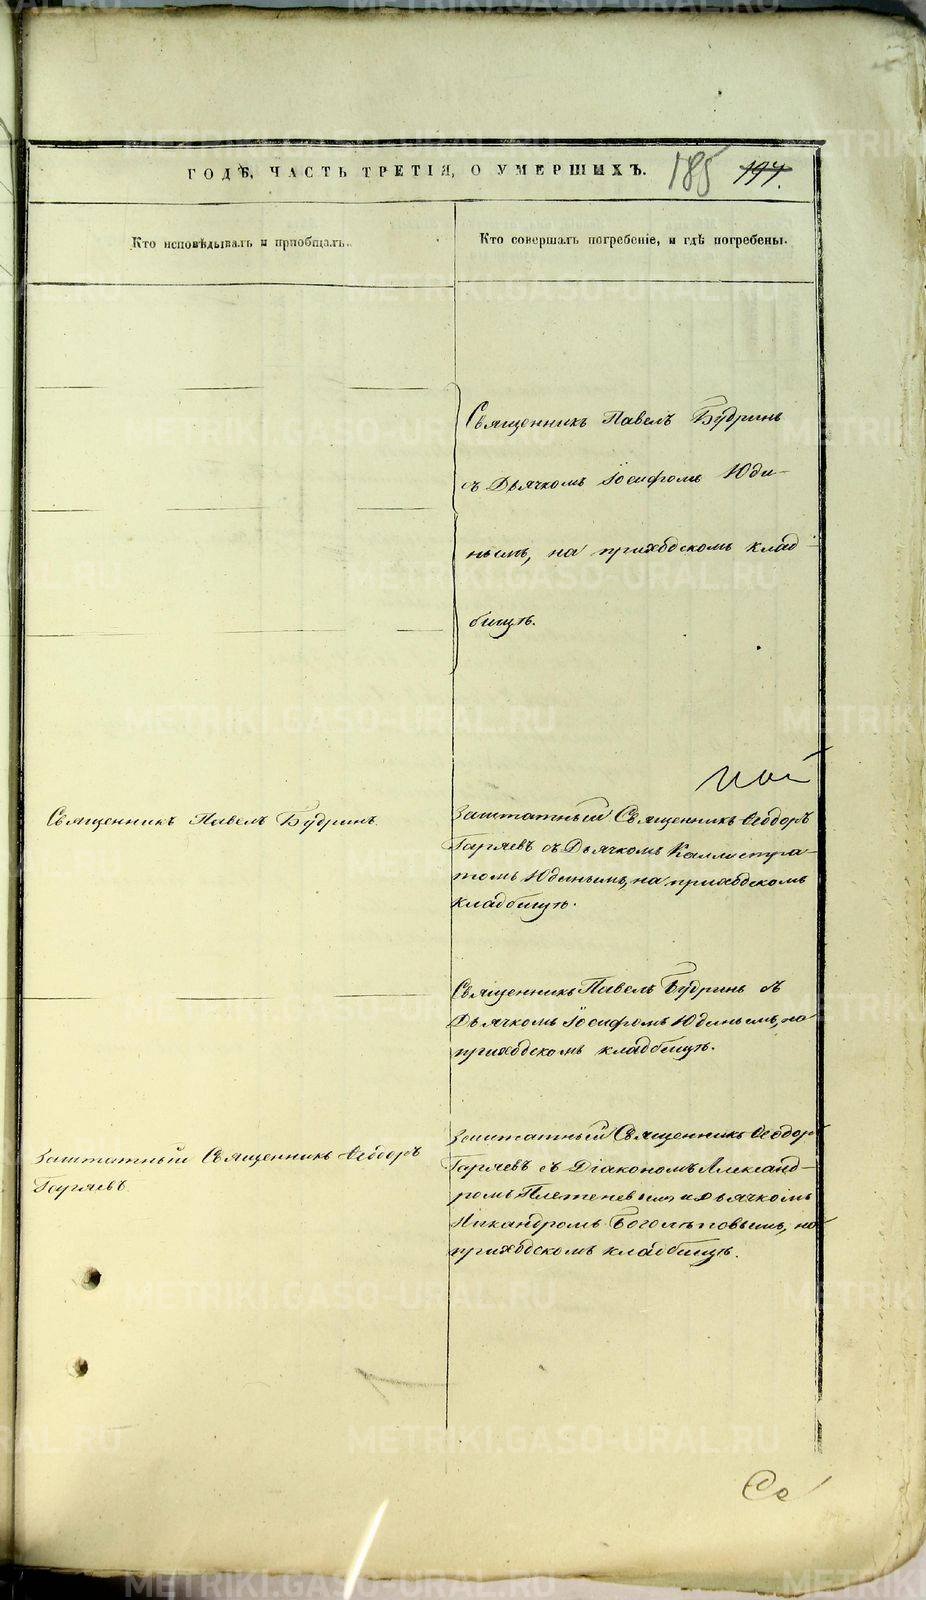 ГОДѢ, ЧАСТЬ ТРЕТІЯ, О УМЕРШИХЪ.
185 197.
Кто исповѣдывалъ и пріобщалъ.
Кто совершалъ погребеніе, и гдѣ погребены.
Священникъ Павелъ Будринъ
съ Дьячкомъ Іосифомъ Юди-
нымъ, на приходскомъ клад-
бищѣ.
Священникъ Павелъ Будринъ.
Заштатный Священникъ Ѳеодоръ
Гаряевъ съ Дьячкомъ Каллистра-
томъ Юдинымъ, на приходскомъ
кладбищѣ.
Священникъ Павелъ Будринъ съ
Дьячкомъ Іосифомъ Юдинымъ, на
приходскомъ кладбищѣ.
Заштатный Священникъ Ѳеодоръ
Гаряевъ.
Заштатный Священникъ Ѳеодоръ
Гаряевъ съ Діакономъ Александ-
ромъ Плетеневымъ и дьячкомъ
Никандромъ Боголѣповымъ, на
приходскомъ кладбищѣ.
Се
METRIKI.GASO-URAL.RU